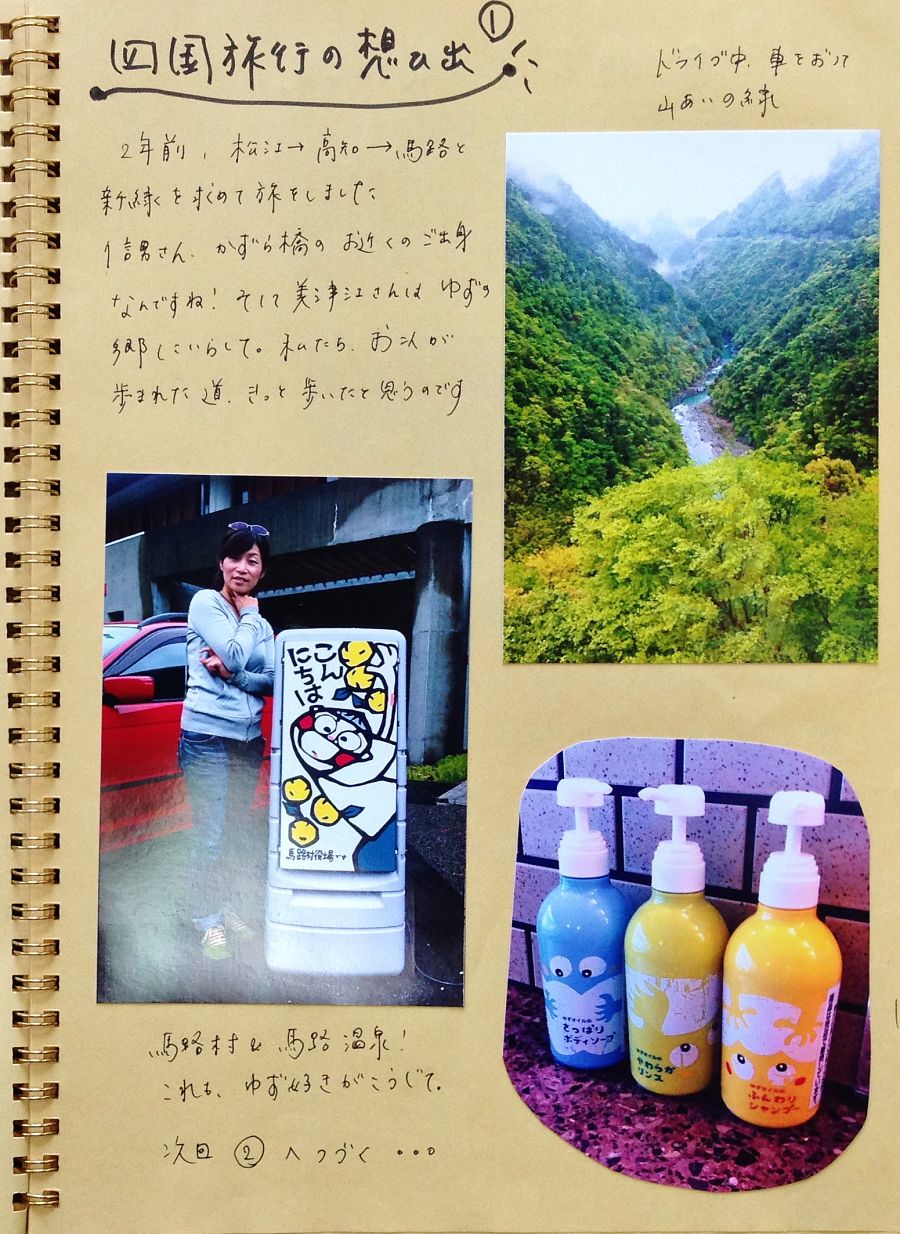 四国旅行の想ひ出①
ドライブ中、車をおりて
山あいの緑
2年前、松江→高知→馬路と
新緑を求めて旅をしました
信男さん、かずら橋のお近くのご出身
なんですね！そして美津江さんはゆずの
郷にいらして。私たち、お二人が
歩まれた道、きっと歩いたと思うのです
こん
にちは
馬路村役場です
ゆずオイルの
さっぱり
ボディソープ
ゆずオイルの
やわらか
リンス
ゆずオイルの
ふんわり
シャンプー
馬路村&馬路温泉！
これも、ゆず好きがこうじて。
次回②へつづく...